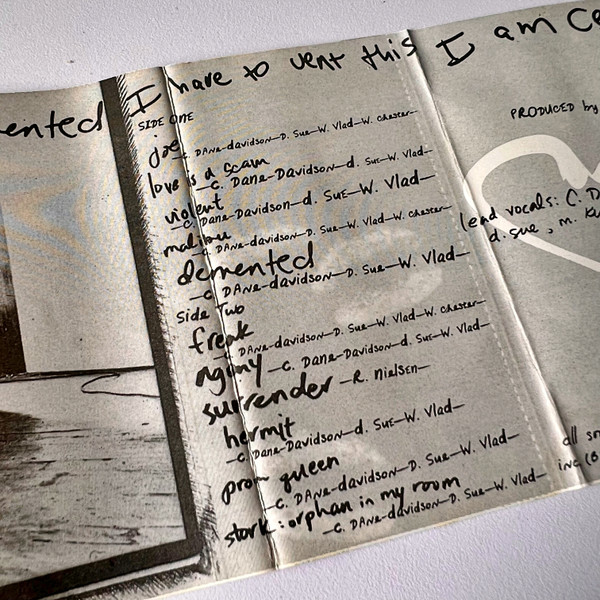 ented I have to vent this I am Ce
SIDE ONE
joe
-C. DANE-davidson-D. Sue-W. Vlad-W. Chester-
love is a scam
-C. Dane-Davidson-d. Sue-W. Vlad-
violent
-C. Dane-Davidson-d. Sue-W. Vlad-
malibu
-C. DANE-davidson-D. Sue-W. Vlad-W. Chester-
demented
-C. DANE-davidson-D. Sue-W. Vlad-
Side Two
freak
-C. DANE-davidson-D. Sue-W. Vlad-W. Chester-
agony -C. Dane-Davidson-d. Sue-W. Vlad-
surrender -R. Nielsen-
hermit
-C. Dane-Davidson-d. Sue-W. Vlad-
prom queen
-C. DANE-davidson-D. Sue-W. Vlad-
stork: orphan in my room
-C. DANE-davidson-D. Sue-W. Vlad-
PRODUCED by
lead vocals: C. D
d. sue, m. Ku
all so
inc (B